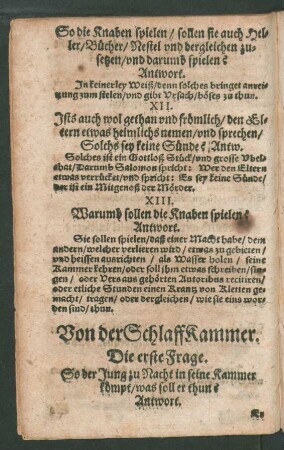 So die Knaben spielen / sollen sie auch Hel-
ler/Bücher/Nestel vnd dergleichen zu-
setzen/vnd darumb spielen?
Antwort.
In keinerley Weiß/denn solches bringet anrei-
tzung zum stelen/vnd gibt Vrsach/böses zu thun.
XII.
Ists auch wol gethan vnd frömlich/den El-
tern etwas heimlichs nemen/vnd sprechen/
Solchs sey keine Sünde? Antw.
Solches ist ein Gottloß Stück/vnd grosse Vbel-
that/Darumb Salomon spricht: Wer den Eltern
etwas verrücket/vnd spricht: Es sey keine Sünde/
der ist ein Mitgenoß der Mörder.
XIII.
Warumb sollen die Knaben spielen?
Antwort.
Sie sollen spielen/daß einer Macht habe/dem
andern/welcher verlieren wird/etwas zu gebieten/
vnd heissen ausrichten / als Wasser holen / seine
Kammer kehren/oder soll ihm etwas schreiben/sin-
gen / oder Vers aus gehörten Autoribus recitiren/
oder etliche Stunden einen Krantz von Kletten ge-
macht/ tragen/ oder dergleichen/ wie sie eins wor-
den sind/thun.
Von der Schlaff Kammer.
Die erste Frage.
So der Jung zu Nacht in seine Kammer
kömpt/was soll er thun?
Antwort.